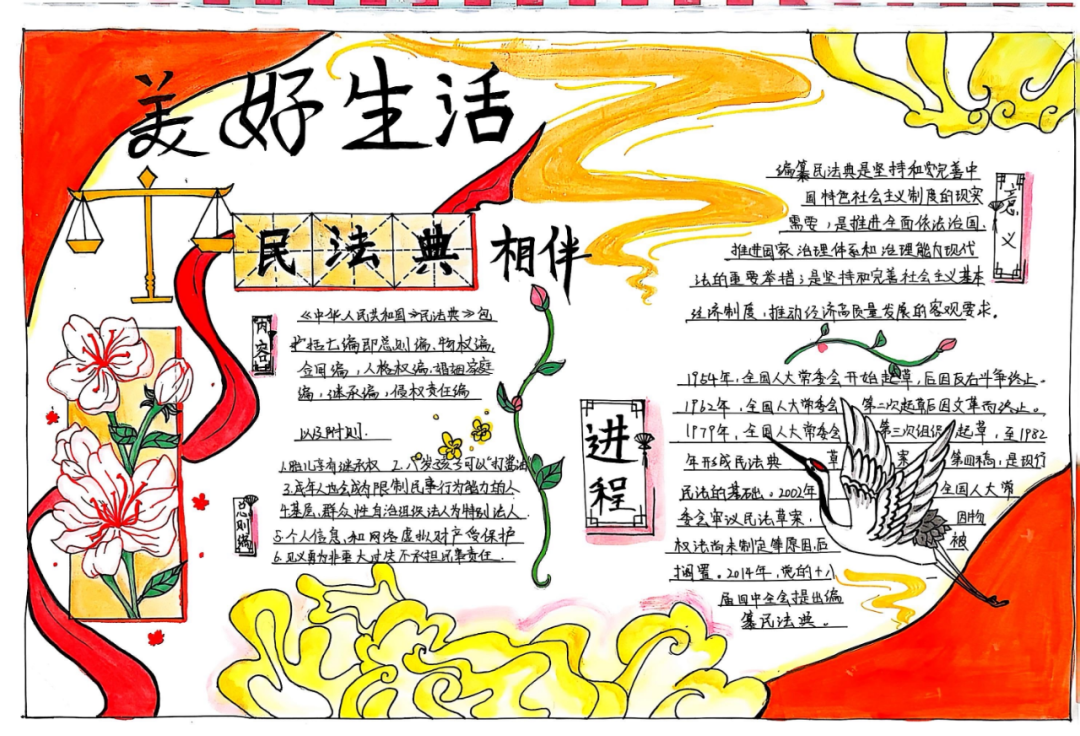 美好生活
民法典 相伴
内容
《中华人民共和国》民法典》包
扩括七编即总则编、物权编,
合同编,人格权编.婚姻家庭
编,继承编,侵权责任编
以及附则.
总则编
1.胎儿享有继承权 2.八岁孩子可以“打酱油”
3.成年人也会成为限制民事行为能力的人
4.基层、群众性自治组织法人为特别法人.
5.个人信息、和网络虚拟财产受保护
6.见义勇为非重大过失不承担民事责任.
意义
编纂民法典是坚持和完善中
国特色社会主义制度的现实
需要;是推进全面依法治国、
推进国家治理体系和治理能力现代
法的重要举措;是坚持和完善社会主义基本
经济制度,推动经济高质量发展的客观要求。
进程
1954年,全国人大常委会开始起草,后因反右斗争终止。
1962年,全国人大常委会 第二次起草后因文革而终止。
1979年,全国人大常委会 第三次组织起草,至1982
年形成民法典 草 案 第四稿,是现行
民法的基础。2002年 全国人大常
委会审议民法草案, 因物
权法尚未制定等原因,后 被
搁置。2014年,党的十八
届四中全会提出编
纂民法典。